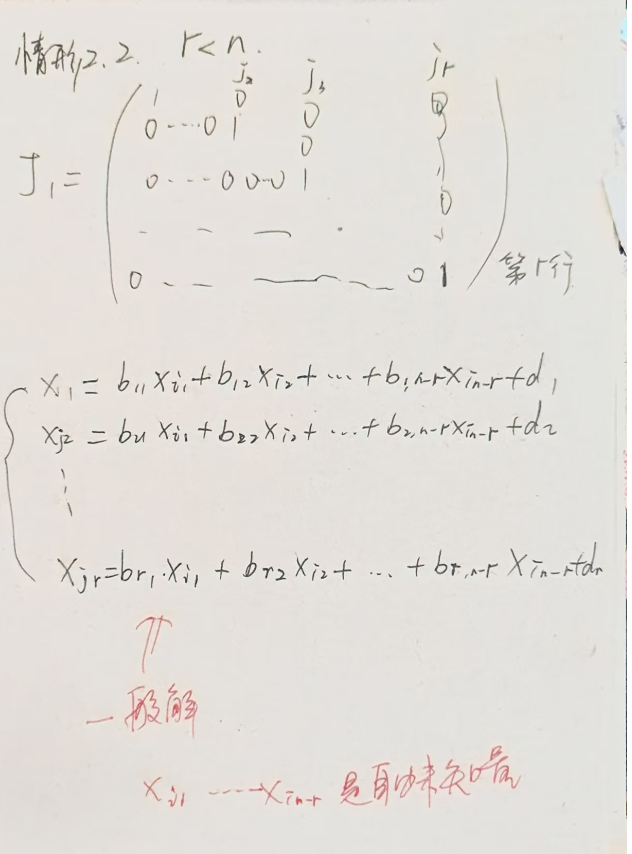 情形2.2. r<n.
j₂ j₃ jᵣ
1 0 0 0
0 ---- 0 1 0
J₁ = 0 ---- 0 0--0 1 0
0 -- 0 1 第r行
x₁ = b₁₁xᵢ₁ + b₁₂xᵢ₂ + ... + b₁,ₙ₋ᵣxᵢₙ₋ᵣ + d₁
xⱼ₂ = b₂₁xᵢ₁ + b₂₂xᵢ₂ + ... + b₂,ₙ₋ᵣxᵢₙ₋ᵣ + d₂
⋮
xⱼᵣ = bᵣ₁·xᵢ₁ + bᵣ₂xᵢ₂ + ... + bᵣ,ₙ₋ᵣxᵢₙ₋ᵣ + dᵣ
⇑
一般解
xᵢ₁ ----- xᵢₙ₋ᵣ 是自由未知